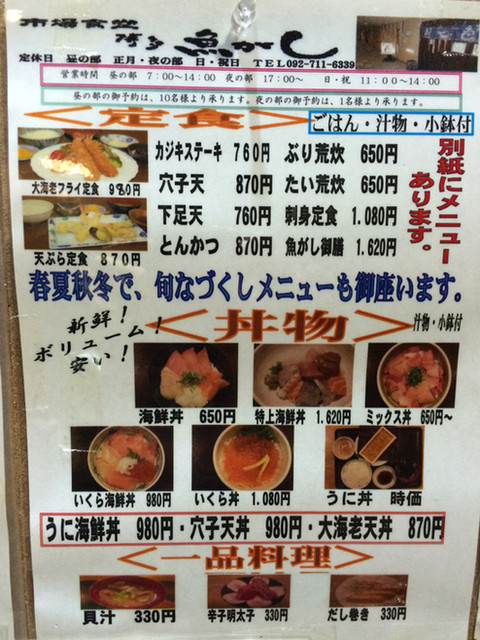 市場食堂 博多 魚がし
定休日 昼の部 正月・夜の部 日・祝日 TEL092-711-6339
営業時間 昼の部 7:00~14:00 夜の部 17:00~ 日・祝 11:00~14:00
昼の部の御予約は、10名様より承ります。夜の部の御予約は、1名様より承ります。
<定食> ごはん・汁物・小鉢付
カジキステーキ 760円 ぶり荒炊 650円
穴子天 870円 たい荒炊 650円
下足天 760円 刺身定食 1.080円
とんかつ 870円 魚がし御膳 1.620円
別紙にメニュー
あります。
大海老フライ定食 980円
天ぷら定食 870円
春夏秋冬で、旬なづくしメニューも御座います。
新鮮!
ボリューム!
安い!
<丼物> 汁物・小鉢付
海鮮丼 650円 特上海鮮丼 1.620円 ミックス丼 650円~
いくら海鮮丼 980円 いくら丼 1.080円 うに丼 時価
うに海鮮丼 980円・穴子天丼 980円・大海老天丼 870円
<一品料理>
貝汁 330円 辛子明太子 330円 だし巻き 330円